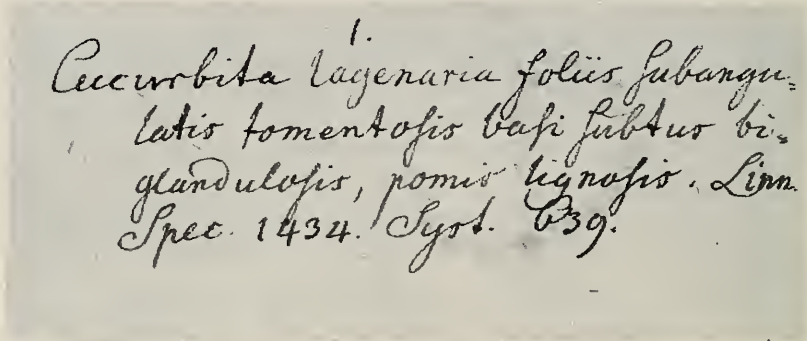 1.
Cucurbita lagenaria foliis subangu=
latis tomentosis basi subtus bi=
glandulosis, pomis lignosis. Linn.
Spec. 1434. Syst. 639.